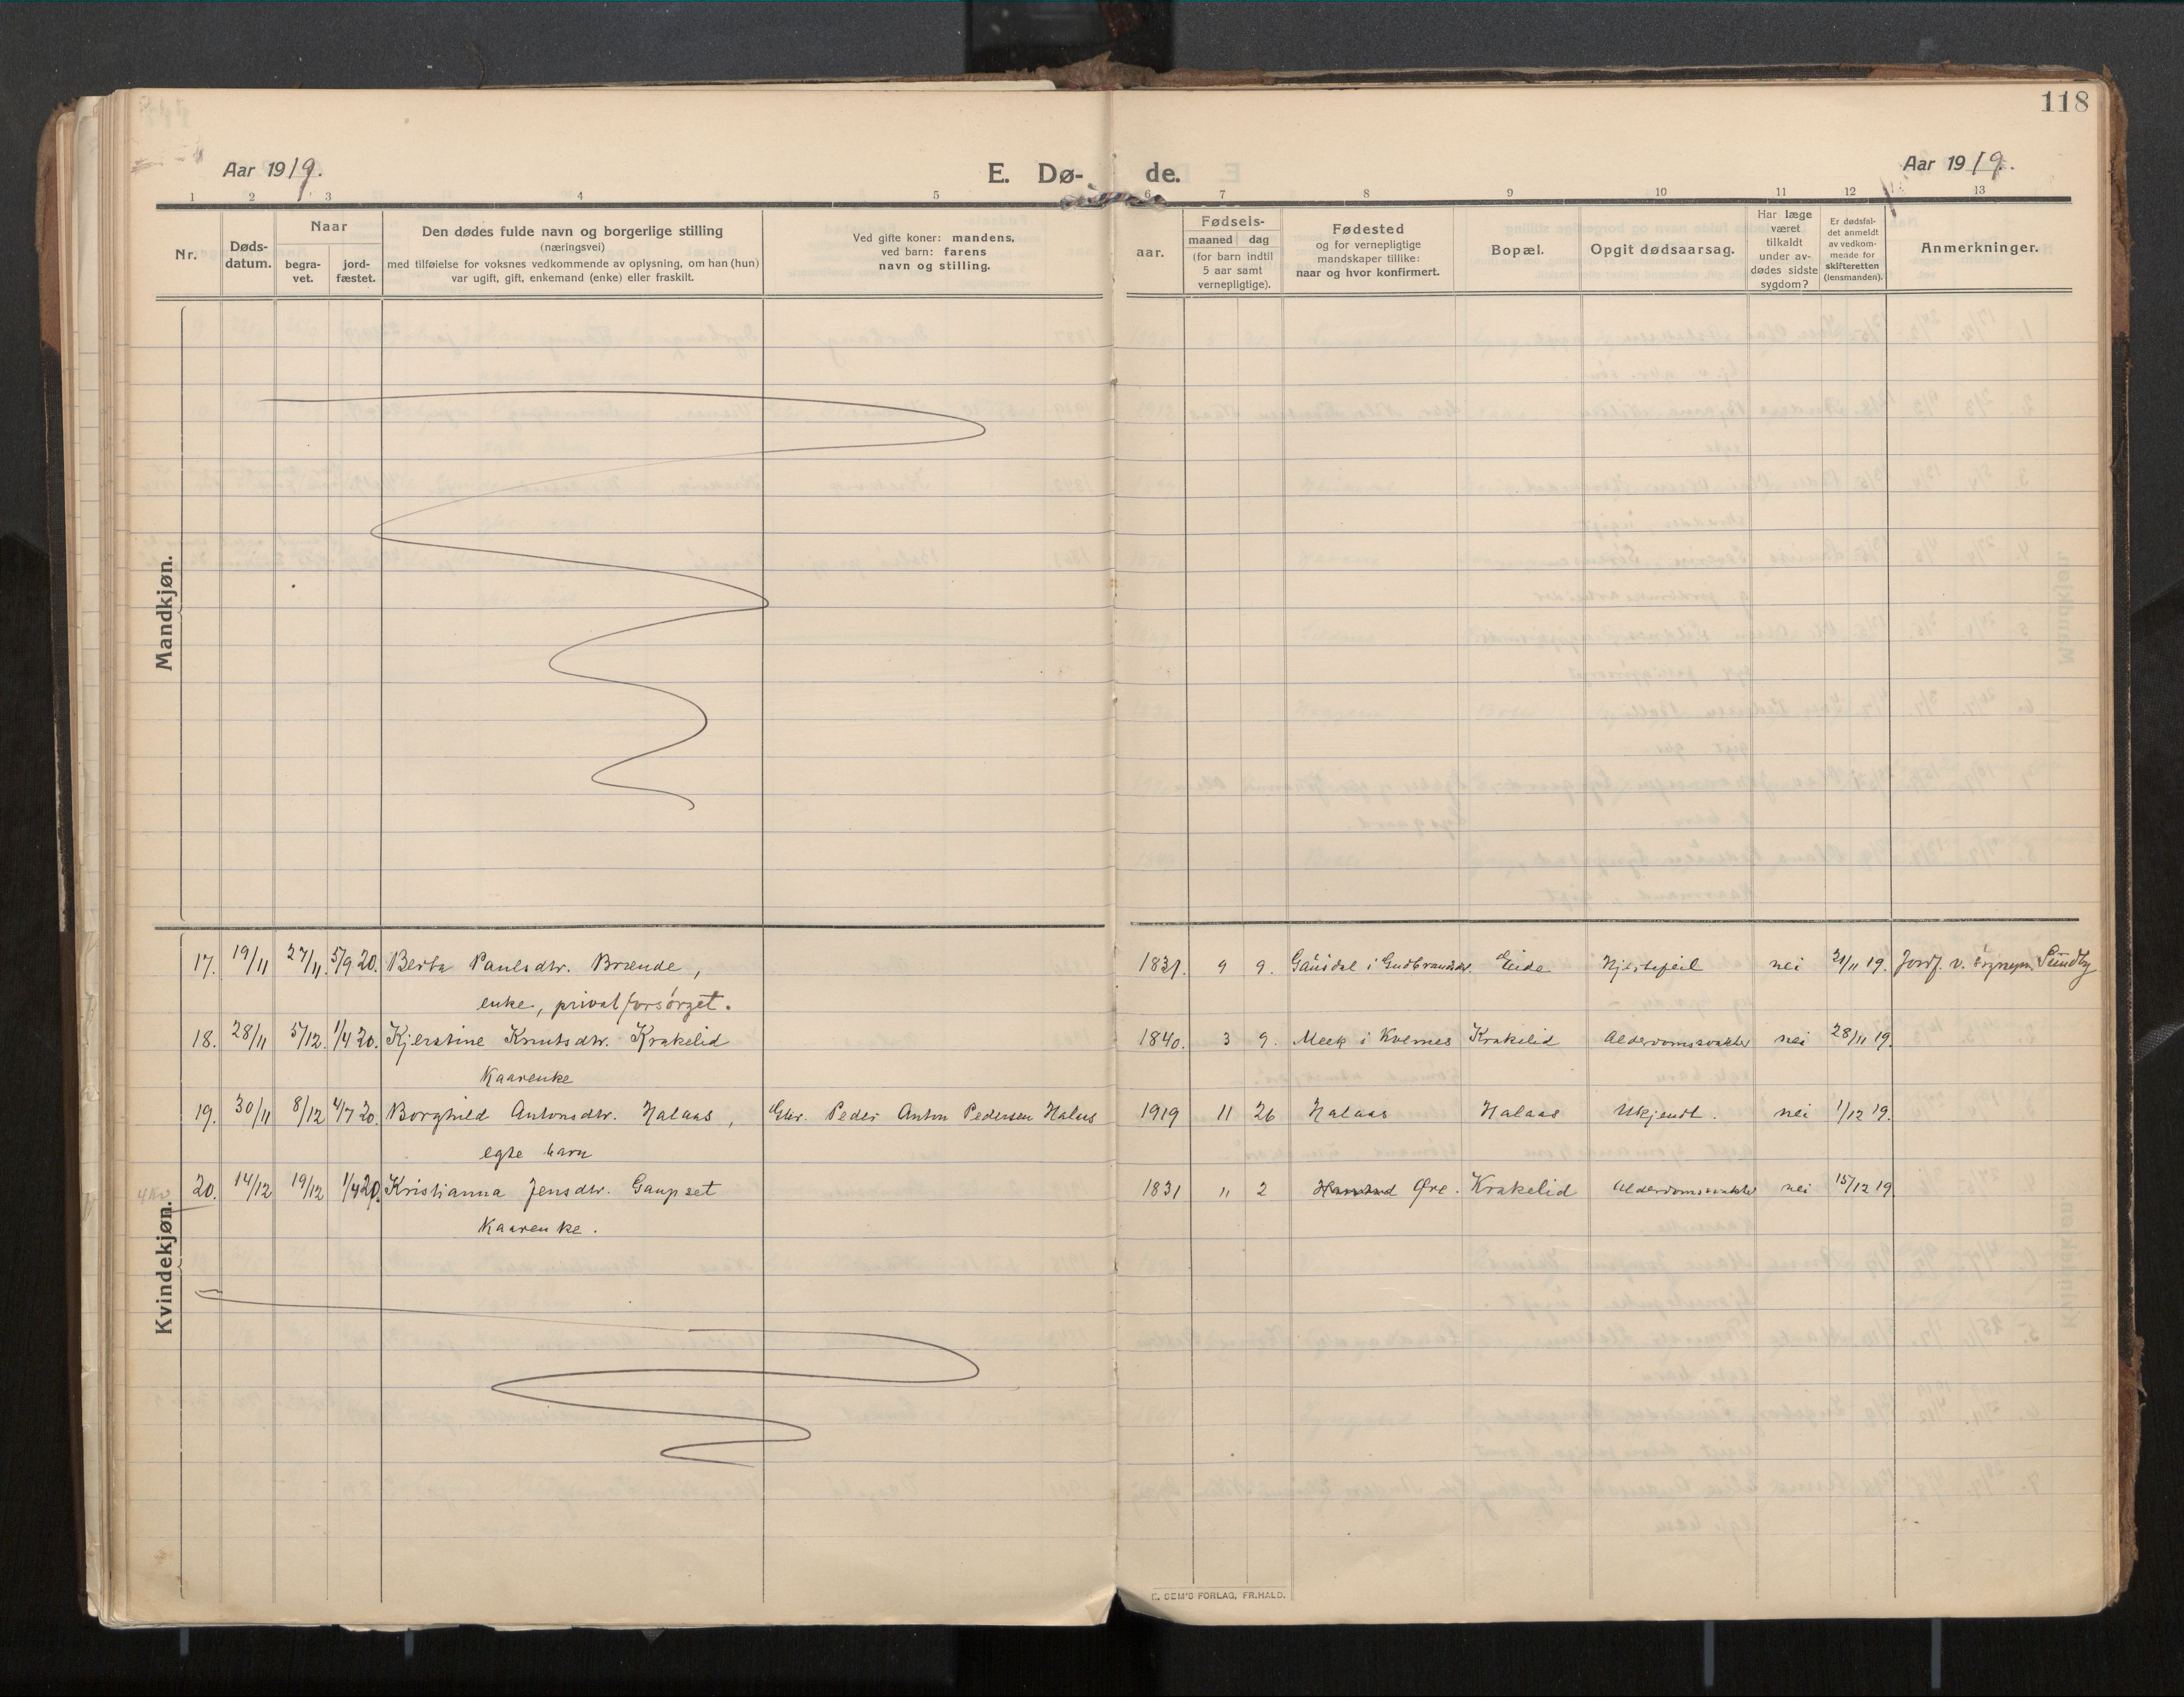 118
Aar 1919.
E. Dø-
de.
Aar 1919.
1 2 3 4 5 6 7 8 9 10 11 12 13
Nr.
Døds-
datum.
Naar
begra-
vet.
jord-
fæstet.
Den dødes fulde navn og borgerlige stilling
(næringsvei)
med tilføielse for voksnes vedkommende av oplysning, om han (hun)
var ugift, gift, enkemand (enke) eller fraskilt.
Ved gifte koner: mandens,
ved barn: farens
navn og stilling.
aar.
Fødsels-
maaned dag
(for barn indtil
5 aar samt
vernepligtige).
Fødested
og for vernepligtige
mandskaper tillike:
naar og hvor konfirmert.
Bopæl.
Opgit dødsaarsag.
Har læge
været
tilkaldt
under av-
dødes sidste
sygdom?
Er dødsfal-
det anmeldt
av vedkom-
mende for
skifteretten
(lensmanden).
Anmerkninger.
Mandkjøn.
Kvindekjøn.
17. 19/11 27/11 5/9 20. Berta Paulsdtr. Brænde, 1831. 9 9. Gausdal i Gudbrandsd. Eide Hjertefeil nei 21/11 19. Jordf. v. sognepr. Sundby
enke, privat forsørget.
18. 28/11 5/12. 1/4 20. Kjerstine Knutsdtr. Krakelid 1840. 3 9. Meek i Kvernes Krakelid Alderdomssvakhet nei 28/11 19.
Kaarenke
19. 30/11 8/12 4/7 20. Borghild Antonsdtr. Halaas, Gbr. Peder Anton Pedersen Halaas 1919 11 26 Halaas Halaas Ukjendt. nei 1/12 19.
egte barn
20. 14/12 19/12 1/4 20. Kristianna Jensdtr. Gaupset 1831 11 2 Øre. Krakelid Alderdomssvakhet nei 15/12 19
Kaarenke.
E. SEM'S FORLAG, FR.HALD.